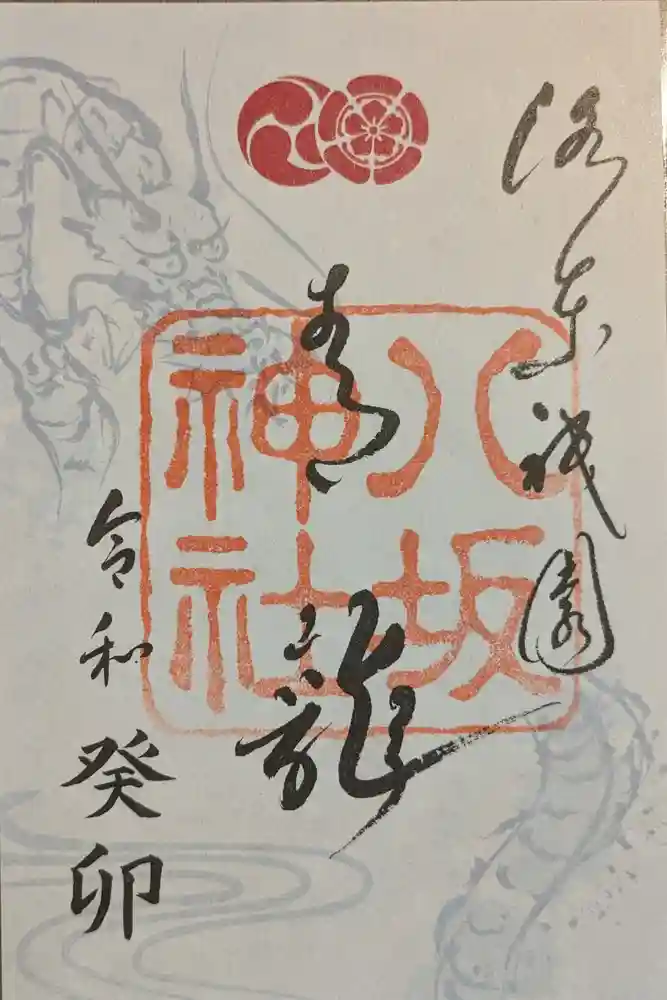 洛东祇園
青龍
八坂
神社
令和癸卯